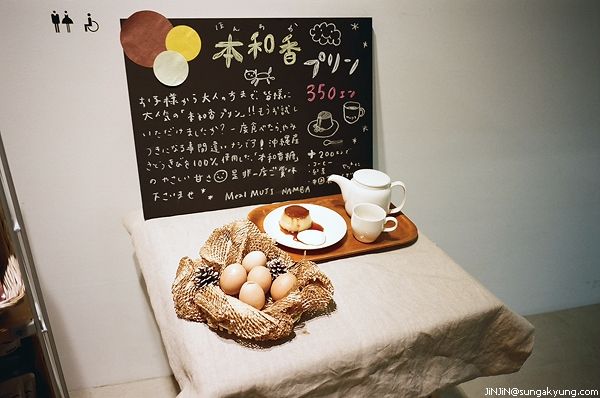 ほんわか
本和香
プリン
350エン
お子様から大人の方まで、皆様に
大人気の「本和香プリン」!!もうお試し
いただけましたか？一度食べたら、やみ
つきになる事間違いナシです!沖縄産
さとうきびを100%使用した「本和香糖」
のやさしい甘さ 是非一度ご賞味
下さいませ
Meal MUJI NAMBA
+200エンで
・コーヒー
・紅茶
JiNJiN@sungakyung.com